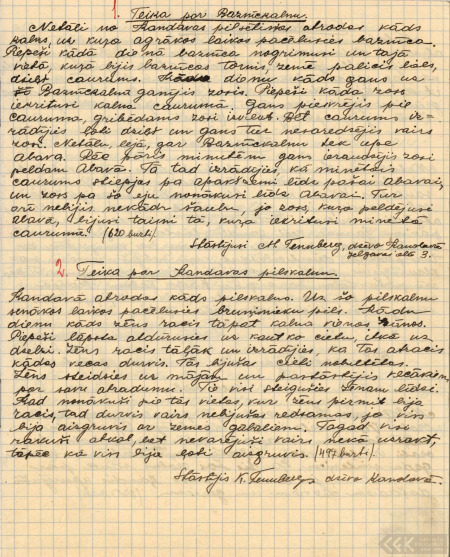 1. Teika par Baznīckalnu.
Netāli no Kandavas pilsētiņas atrodas kāds
kalns, uz kura agrākos laikos pacēlusies baznīca.
Pēpeši kādā dienā baznīca nogrimusi un tajā
vietā, kurā bijis baznīcas tornis, zemē palicis liels,
dziļš caurums. Kādu dienu kāds gans uz
Baznīckalna ganījis zosis. Pēpeši kāda zoss
iekritusi kalna caurumā. Gans pieskrējis pie
cauruma, gribēdams zosi izvilkt. Bet caurums iz-
rādījies ļoti dziļš un gans tur nesaredzējis vairs
zosi. Netālu, lejā, gar Baznīckalnu tek upe
Abava. Pēc pāris minūtēm gans ieraudzījis zosi
peldam Abavā. Tā tad izrādījies, ka minētais
caurums stiepjas pa apakšzemi līdz pašai Abavai,
un zoss pa šo eju nonākusi līdz Abavai. Tur
arī nebijis nekādu šaubu, jo zoss, kura peldējusi
Abavā, bijusi taisni tā, kura iekritusi minētā
caurumā. (620 burti).
Stāstījusi M. Tennberg, dzīvo Kandavā
Jelgavas ielā 3.
2. Teika par Kandavas pilskalnu.
Kandavā atrodas kāds pilskalns. Uz šo pilskalnu
senākos laikos pacēlusies bruņinieku pils. Kādu
dienu kāds zēns racis tāpat kalna vienos sānos.
Pēpeši lāpsta atdūrusies uz kaut ko cietu, itkā uz
dzelzi. Zēns racis tālāk un izrādījies, ka tas atracis
kādas vecas durvis. Tās bijušas cieši noslēgtas.
Zēns steidzies uz mājām un pastāstījis vecākiem
par savu atradumu. Tie visi steigušies zēnam līdzi.
Kad nonākuši pie tās vietas, kur zēns pirmīt bija
racis, tad durvis vairs nebijušas redzamas, jo viss
bija aizgruvis ar zemes gabaliem. Tagad visi
rakuši atkal, bet nevarējuši vairs nekā uzrakt,
tāpēc ka viss bija ļoti aizgruvis. (497 burti).
Stāstījis K. Tennbergs dzīvo Kandavā.